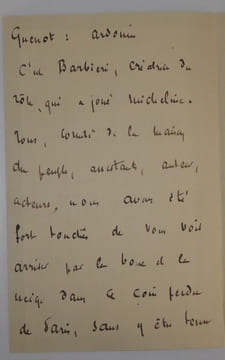 Guenot : Ardouin
C'est Barbieri, créatrice du
rôle, qui a joué Micheline.
Tous, comité de la maison
du peuple, assistants, auteur,
acteurs, nous avons été
fort touchés de vous voir
arriver par la boue et la
neige dans ce coin perdu
de Paris, sans y être tenu